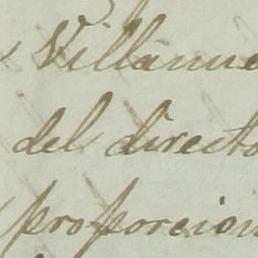 Villanue
del directo
proporcion